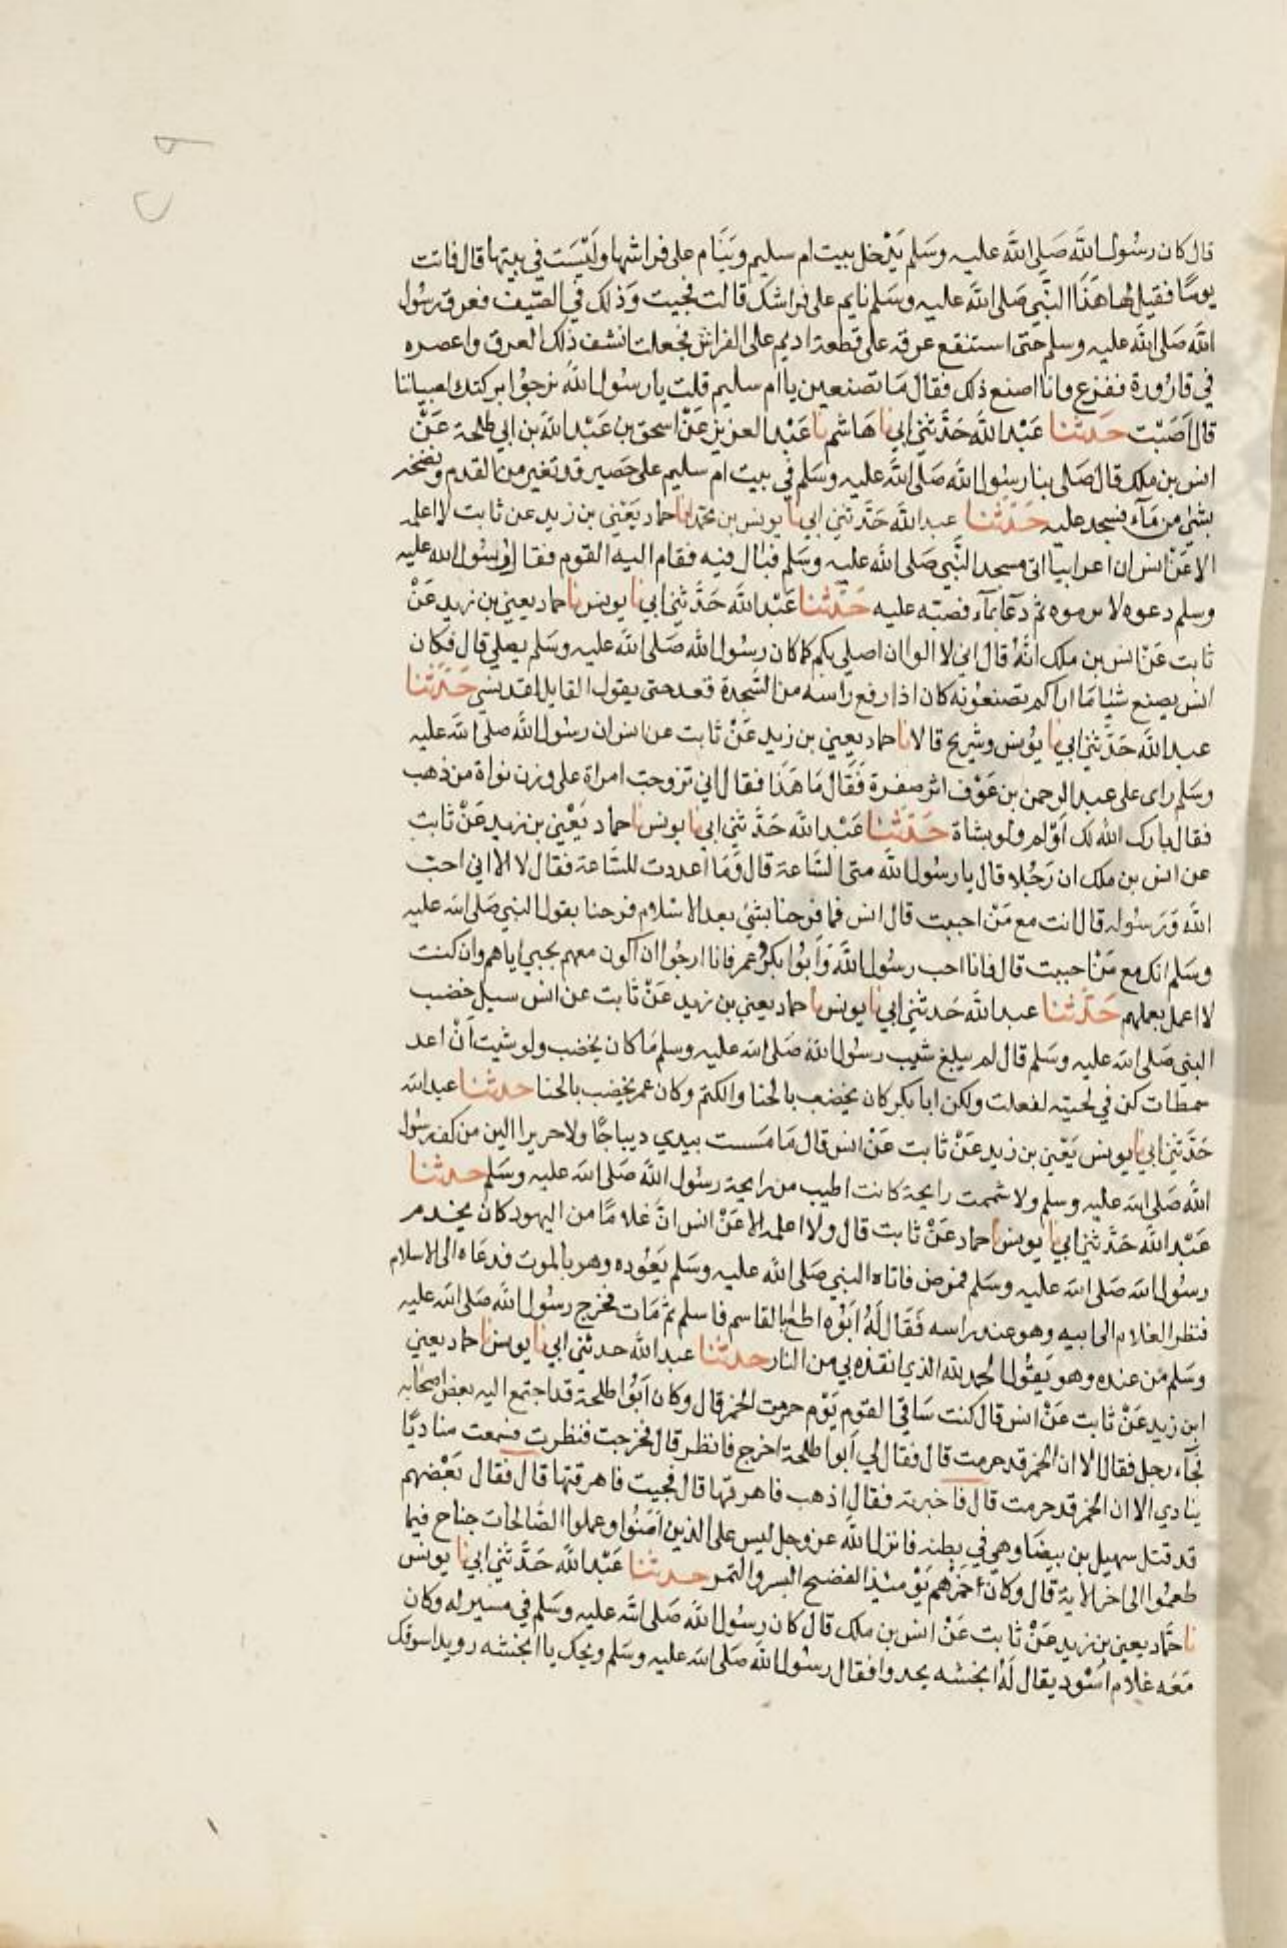 قال كان رسول الله صلى الله عليه وسلم يدخل بيت ام سليم وينام على فراشها وليست في بيتها قال فاتت
يوما فقيل لها هذا النبي صلى الله عليه وسلم نايم على فراشك قالت فجيت وذلك في الصيف فعرق رسول
الله صلى الله عليه وسلم حتى استنقع عرقه على قطعة اديم على الفراش فجعلت انشف ذلك العرق واعصره
في قارورة ففزع وانا اصنع ذلك فقال ما تصنعين يا ام سليم قلت يا رسول الله نرجوا بركتك لصبياننا
قال اصبت حدثنا عبد الله حدثني ابي نا هاشم نا عبد العزيز عن اسحق بن عبد الله بن ابي طلحة عن
انس بن ملك قال صلى بنا رسول الله صلى الله عليه وسلم في بيت ام سليم على حصير قد تغير من القدم ونضحه
بشي من مآء فسجد عليه حدثنا عبد الله حدثني ابي نا يونس بن محمد نا حماد يعني بن زيد عن ثابت لا اعلمه
الا عن انس ان اعرابيا اتى مسجد النبي صلى الله عليه وسلم فبال فيه فقام اليه القوم فقال رسول الله عليه
وسلم دعوه لا تزرموه ثم دعا بمآء فصبه عليه حدثنا عبد الله حدثني ابي نا يونس نا حماد يعني بن زيد عن
ثابت عن انس بن ملك انه قال اني لا الوا ان اصلي بكم كما كان رسول الله صلى الله عليه وسلم يصلي قال فكان
انس يصنع شيا ما اراكم تصنعونه كان اذا رفع راسه من السجدة قعد حتى يقول القايل لقد نسي حدثنا
عبد الله حدثني ابي نا يونس وشريح قالا نا حماد يعني بن زيد عن ثابت عن انس ان رسول الله صلى الله عليه
وسلم راى على عبد الرحمن بن عوف اثر صفرة فقال ما هذا فقال اني تزوجت امراة على وزن نواة من ذهب
فقال بارك الله لك اولم ولو بشاة حدثنا عبد الله حدثني ابي نا يونس نا حماد يعني بن زيد عن ثابت
عن انس بن ملك ان رجلا قال يا رسول الله متى الساعة قال وما اعددت للساعة فقال لا الا اني احب
الله ورسوله قال انت مع من احببت قال انس فما فرحنا بشي بعد الاسلام فرحنا بقول النبي صلى الله عليه
وسلم انك مع من احببت قال فانا احب رسول الله وابوا بكر وعمر فانا ارجوا ان اكون معهم بحبي اياهم وان كنت
لا اعمل بعملهم حدثنا عبد الله حدثني ابي نا يونس نا حماد يعني بن زيد عن ثابت عن انس سيل خضب
النبي صلى الله عليه وسلم قال لم يبلغ شيب رسول الله صلى الله عليه وسلم ما كان يخضب ولو شيت ان اعد
شمطات كن في لحيته لفعلت ولكن ابا بكر كان يخضب بالحنا والكتم وكان عمر يخضب بالحنا حدثنا عبد الله
حدثني ابي نا يونس يعني بن زيد عن ثابت عن انس قال ما مسست بيدي ديباجا ولا حريرا الين من كف رسول
الله صلى الله عليه وسلم ولا شممت رايحة كانت اطيب من رايحة رسول الله صلى الله عليه وسلم حدثنا
عبد الله حدثني ابي نا يونس نا حماد عن ثابت قال ولا اعلمه الا عن انس ان غلاما من اليهود كان يخدم
رسول الله صلى الله عليه وسلم فمرض فاتاه النبي صلى الله عليه وسلم يعوده وهو بالموت فدعاه الى الاسلام
فنظر الغلام الى ابيه وهو عند راسه فقال له ابوه اطع ابا القاسم فاسلم ثم مات فخرج رسول الله صلى الله عليه
وسلم من عنده وهو يقول الحمد لله الذي انقذه بي من النار حدثنا عبد الله حدثني ابي نا يونس نا حماد يعني
ابن زيد عن ثابت عن انس قال كنت ساقي القوم يوم حرمت الخمر قال وكان ابوا طلحة قد اجتمع اليه بعض اصحابه
فجآء رجل فقال الا ان الخمر قد حرمت قال فقال لي ابوا طلحة اخرج فانظر قال فخرجت فنظرت فسمعت مناديا
ينادي الا ان الخمر قد حرمت قال فاخبرته فقال اذهب فاهرقها قال فجيت فاهرقتها قال فقال بعضهم
قد قتل سهيل بن بيضا وهي في بطنه فانزل الله عز وجل ليس على الذين امنوا وعملوا الصالحات جناح فيما
طعموا الى اخر الاية قال وكان خمرهم يوميذ الفضيح البسر والتمر حدثنا عبد الله حدثني ابي نا يونس
نا حماد يعني بن زيد عن ثابت عن انس بن ملك قال كان رسول الله صلى الله عليه وسلم في مسير له وكان
معه غلام اسود يقال له انجشه يحدوا فقال رسول الله صلى الله عليه وسلم ويحك يا انجشه رويدا سوقك